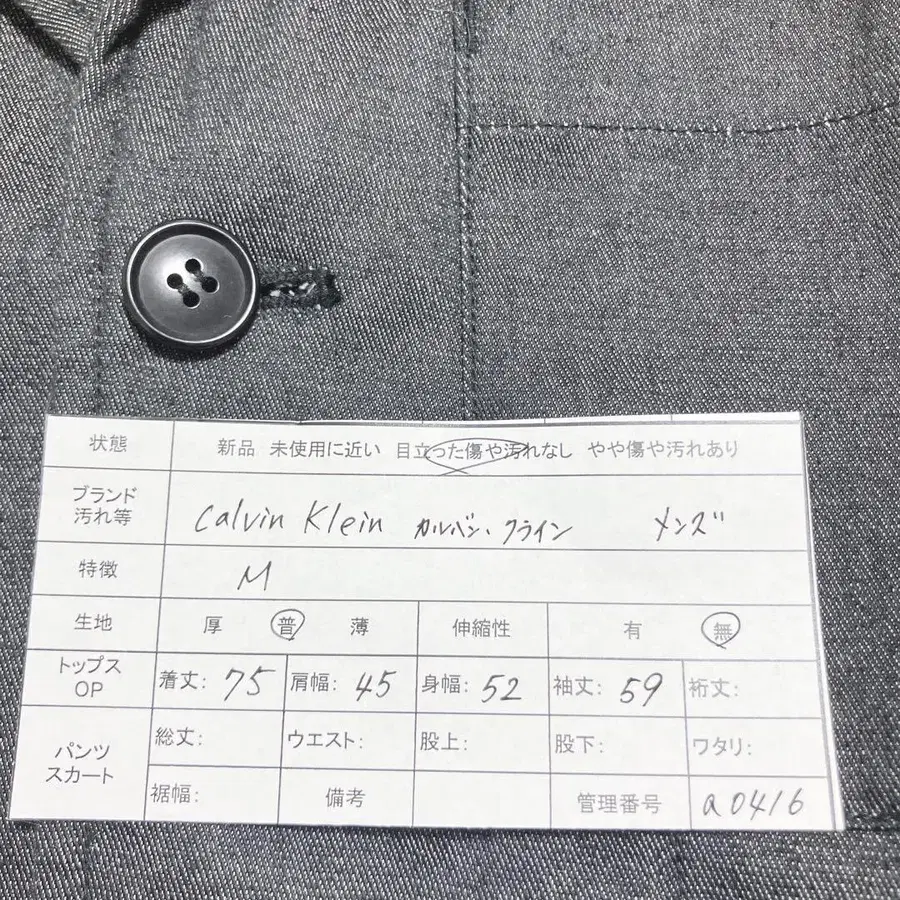 状態 新品 未使用に近い 目立った傷や汚れなし やや傷や汚れあり
ブランド
汚れ等 Calvin Klein カルバン、クライン メンズ
特徴 M
生地 厚 普 薄 伸縮性 有 無
トップス
OP 着丈: 75 肩幅: 45 身幅: 52 袖丈: 59 裄丈:
パンツ
スカート 総丈: ウエスト: 股上: 股下: ワタリ:
裾幅: 備考 管理番号 a0416